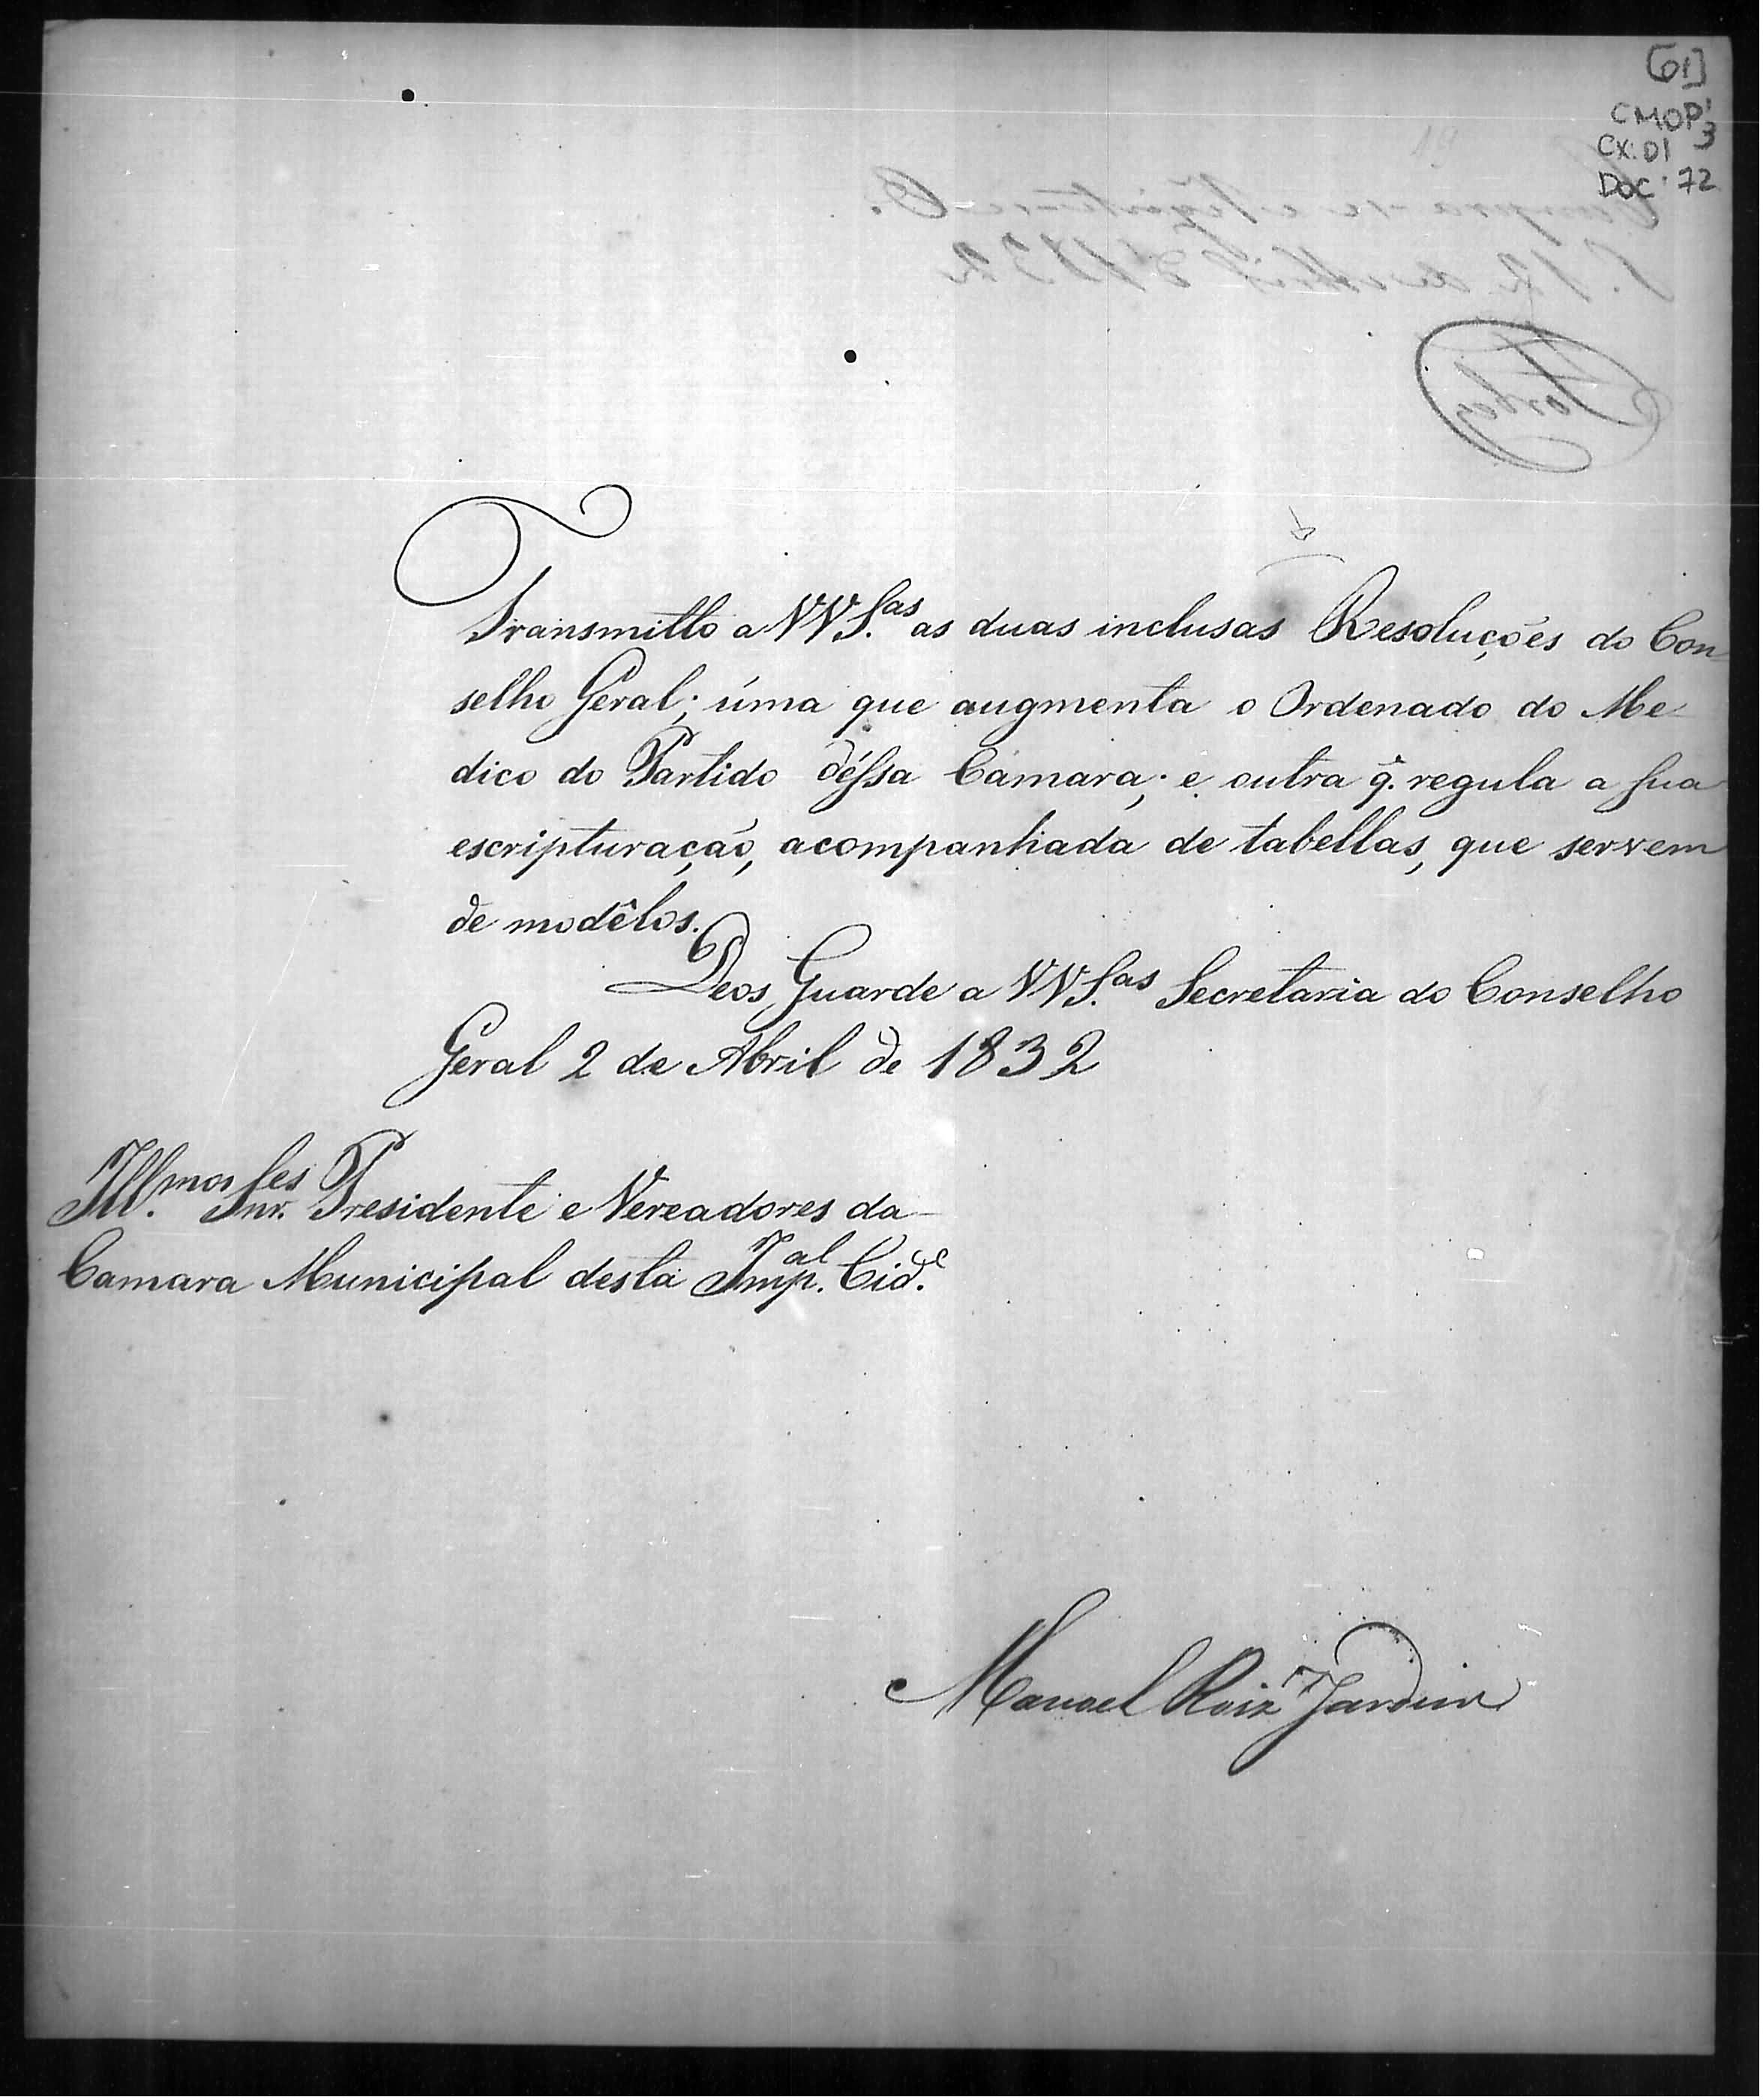 [01]
CMOP 1
3
CX: 01
DOC: 72
Transmitto a VV S.as as duas inclusas Resoluções do Con=
selho Geral; úma que augmenta o Ordenado do Me=
dico do Partido déssa Câmara; e outra q. regula a sua
escripturação, acompanhada de tabellas, que servem
de modêlos.
Deos Guarde a VV S.as Secretaria do Conselho
Geral 2 de Abril de 1832
Ill.mos Snr.es Presidente e Vereadores da
Camara Municipal desta Imp.al Cid.e
Manoel Roiz Jardim